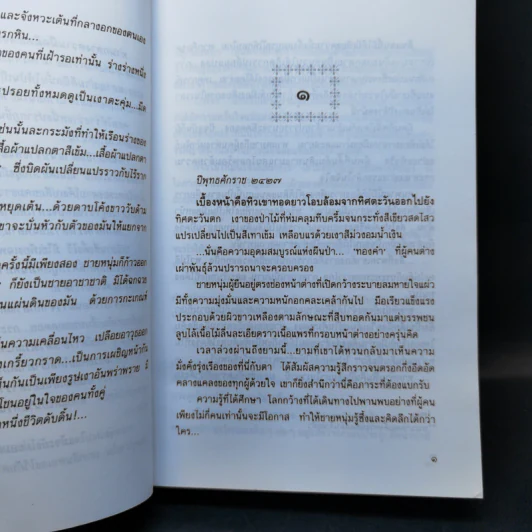 และจังหวะเต้นที่กลางอกของตนเอง
รกหิน...
ของคนที่เฝ้ารอเท่านั้น ร่างร่างหนึ่ง
ปรอยทั้งหมดดูเป็นเงาตะคุ่ม...มืด
ช่นนั้นละกระมังที่ทำให้เรือนร่างของ
สื้อผ้าแปลกตาสีเข้ม...เสื้อผ้าแปลกตา
ซึ่งบิดผันเปลี่ยนแปรราวกับไร้จาก
หยุดเต้น...ด้วยดาบโค้งยาววับด้าม
ขาจะบั่นหัวกับตัวของมันให้แยกจาก
ครั้งนี้มีเพียงสอง ชายหนุ่มก็ก้าวออก
ก็ยังเป็นชายอาชาชาติ มิได้อกฉวย
นแผ่นดินของมัน ด้วยการกะเกณฑ์
นความเคลื่อนไหว เปลือยอาวุธออก
เกรี้ยวกราด...เป็นการเผชิญหน้ากัน
ห็นกันเป็นเพียงรูปเงาอันพร่าพราย มี
โชนอยู่ในใจของคนทั้งคู่
หนึ่งชีวิตดับดิ้น!...
๑
ปีพุทธศักราช ๒๔๒๗
เบื้องหน้าคือทิวเขาทอดยาวโอบล้อมจากทิศตะวันออกไปยัง
ทิศตะวันตก เงาของป่าไม้ที่ห่มคลุมทึบครึ้มจนกระทั่งสีเขียวสดใสว
แปรเปลี่ยนไปเป็นสีเทาเข้ม เหลือบแรด้วยเงาสีม่วงอมน้ำเงิน
...นั่นคือความอุดมสมบูรณ์แห่งผืนป่า... 'ทองคำ' ที่ผู้คนต่าง
เผ่าพันธุ์ล้วนปรารถนาจะครอบครอง
ชายหนุ่มผู้ยืนอยู่ตรงช่องหน้าต่างที่เปิดกว้างระบายลมหายใจแผ่ว
มีทั้งความมุ่งมั่นและความหนักอกคละเคล้ากันไป มือเรียวแข็งแรง
ประกอบด้วยผิวขาวเหลืองตามลักษณะที่สืบทอดกันมาแต่บรรพชน
ลูบไล้เนื้อไม้ลื่นละเอียดราวเนื้อแพรที่กรอบหน้าต่างอย่างครุ่นคิด
เวลาล่วงผ่านถึงยามนี้...ยามที่เขาได้หวนกลับมาเห็นความ
มั่งคั่งรุ่งเรืองของที่นี่กับตา ได้สัมผัสความรู้สึกราวจนตรอกกึ่งอึดอัด
คลางแคลงของทุกผู้ด้วยใจ เขาก็ยิ่งสำนึกว่านี่คือภาระที่ต้องแบกรับ
ความรู้ที่ได้ศึกษา โลกกว้างที่ได้เดินทางไปพานพบอย่างที่ผู้คน
เพียงไม่กี่คนเท่านั้นจะมีโอกาส ทำให้ชายหนุ่มรู้ซึ้งและคิดลึกได้กว่า
ใคร...
๑